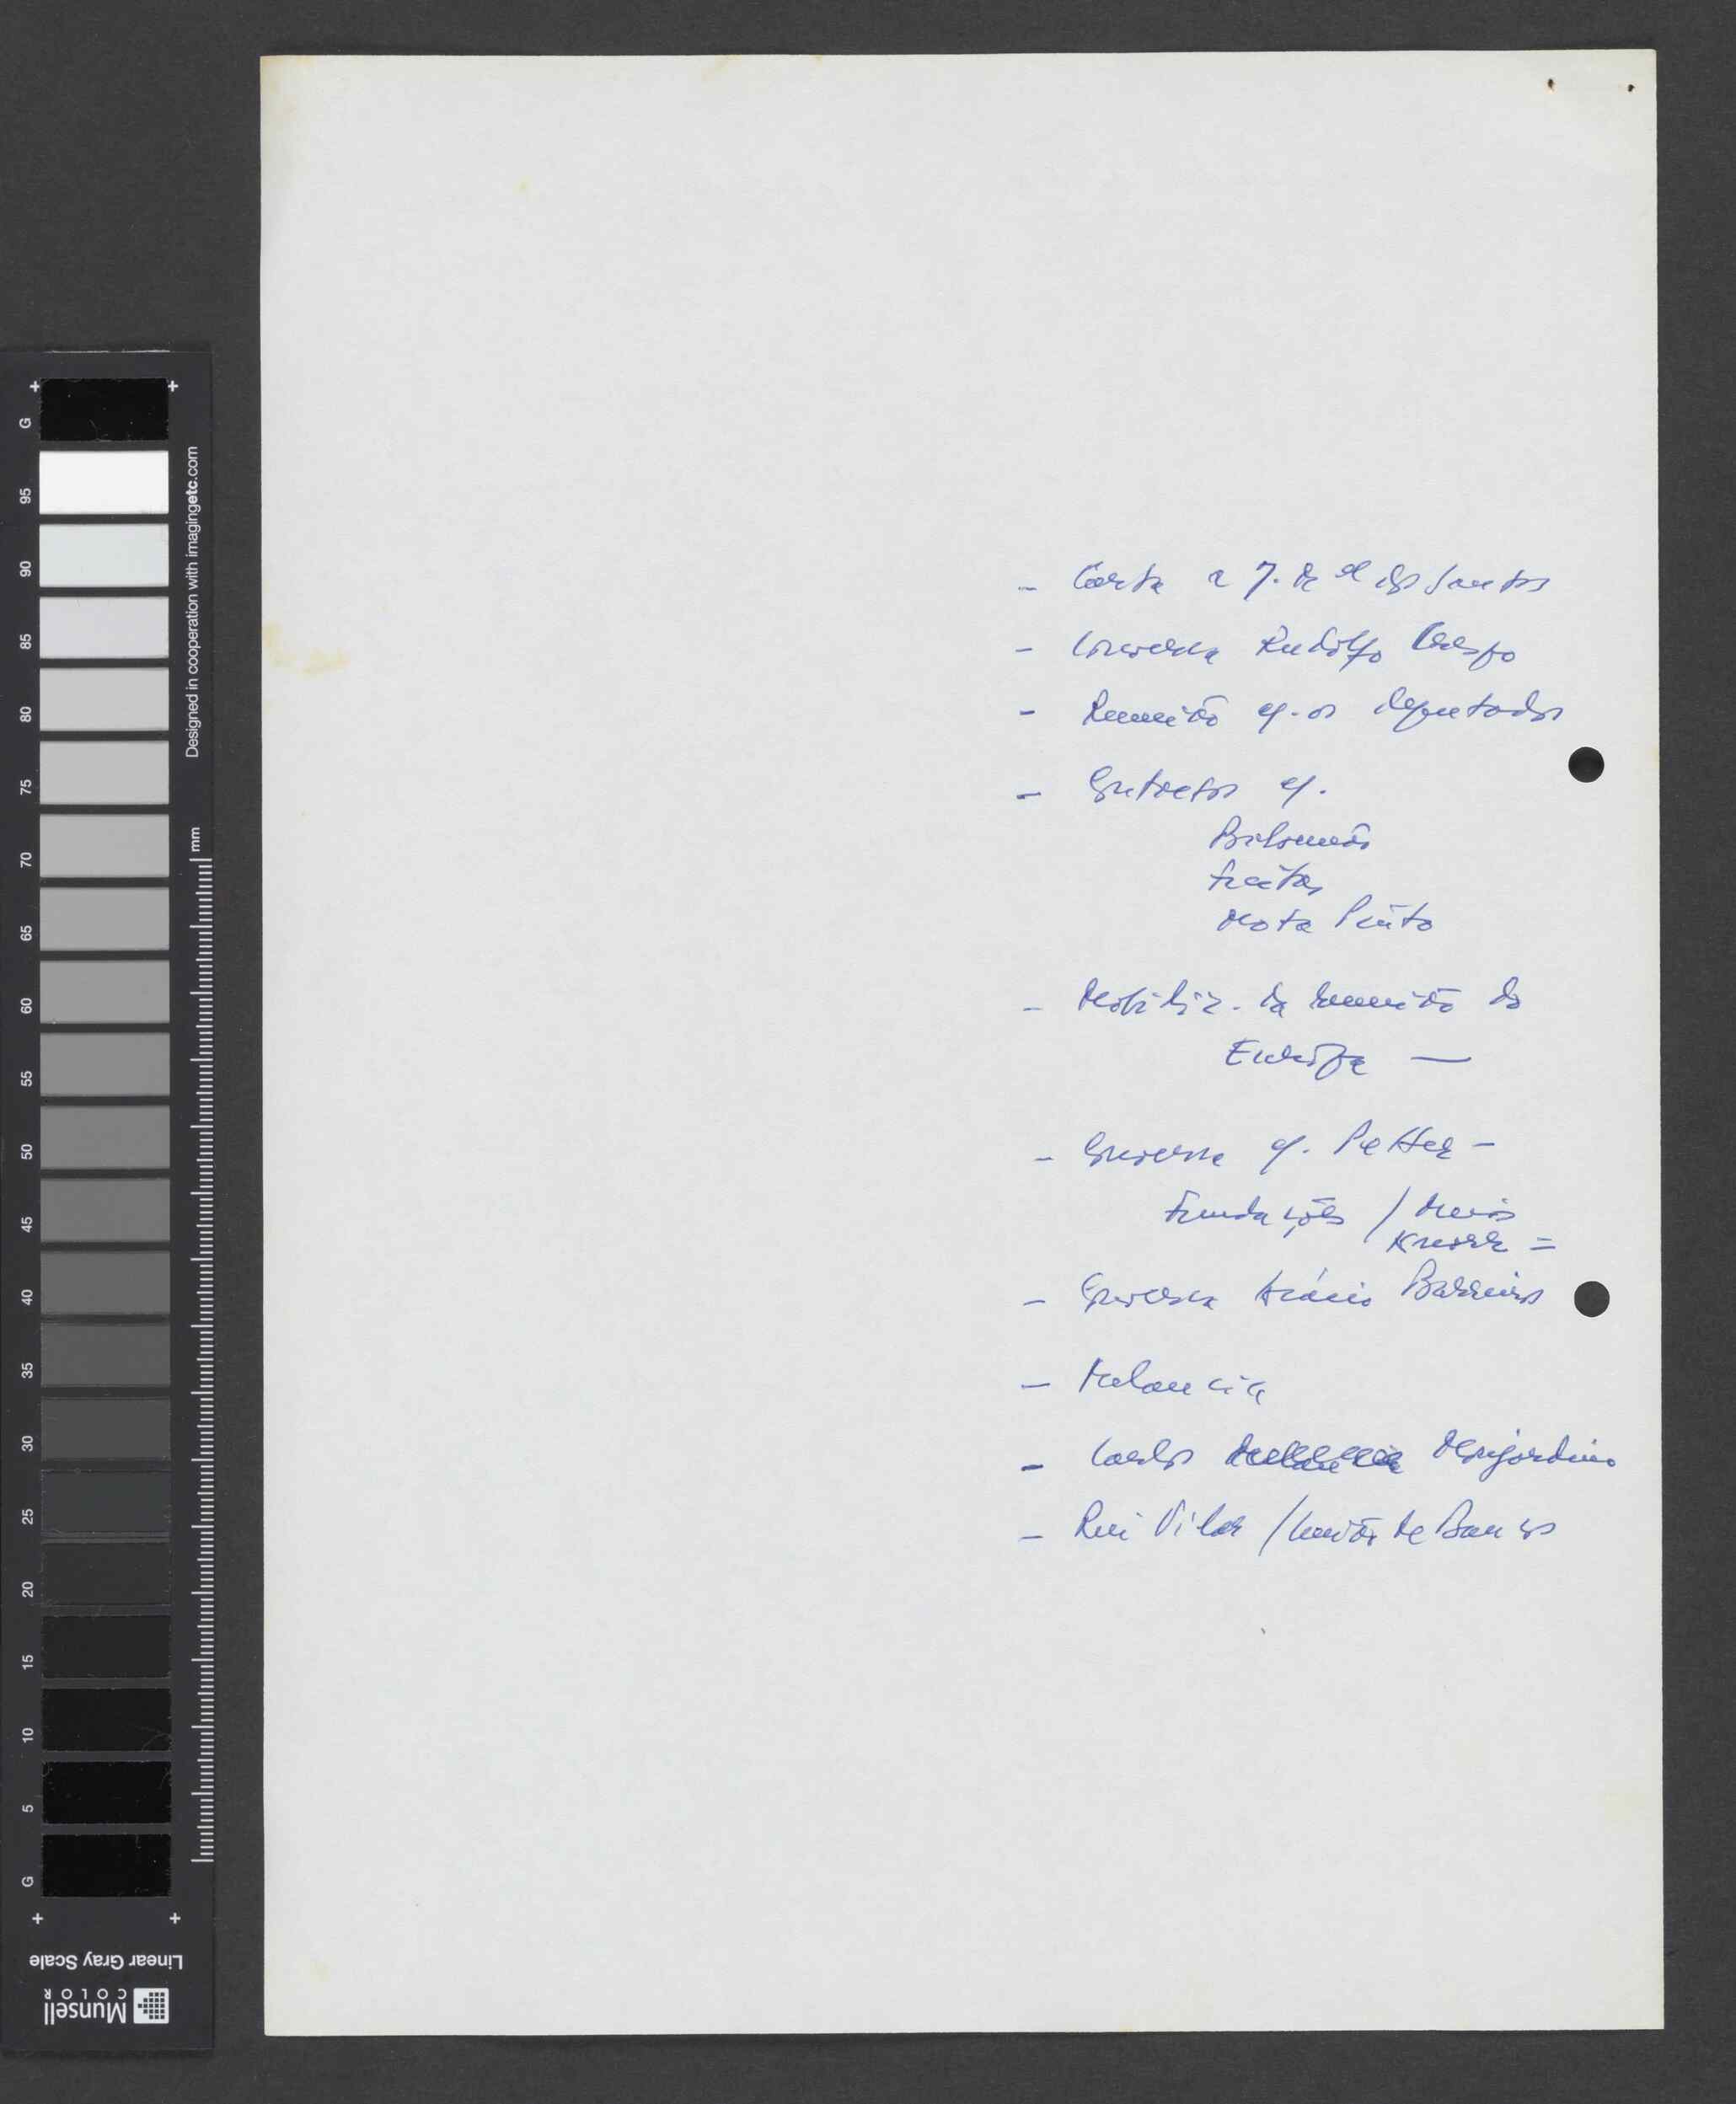 - Carta a J. de A dos Santos
- Conversa Rudolfo Crespo
- Reunião c/. os deputados
- Contactos c/.
Balsemão
Freitas
Mota Pinto
- Mobiliz. da reunião da
Europa —
- Conversa c/. Petter -
Fundações /
- Conversa Acácio Barreiros
- Melancia
- Carlos Melancia Monjardino
- Rui Vilar / União de Bancos
G 95 90 85 80 75 70 65 60 55 50 45 40 35 30 25 20 15 10 5 G
Designed in cooperation with imagingetc.com
mm
Linear Gray Scale
Munsell
COLOR